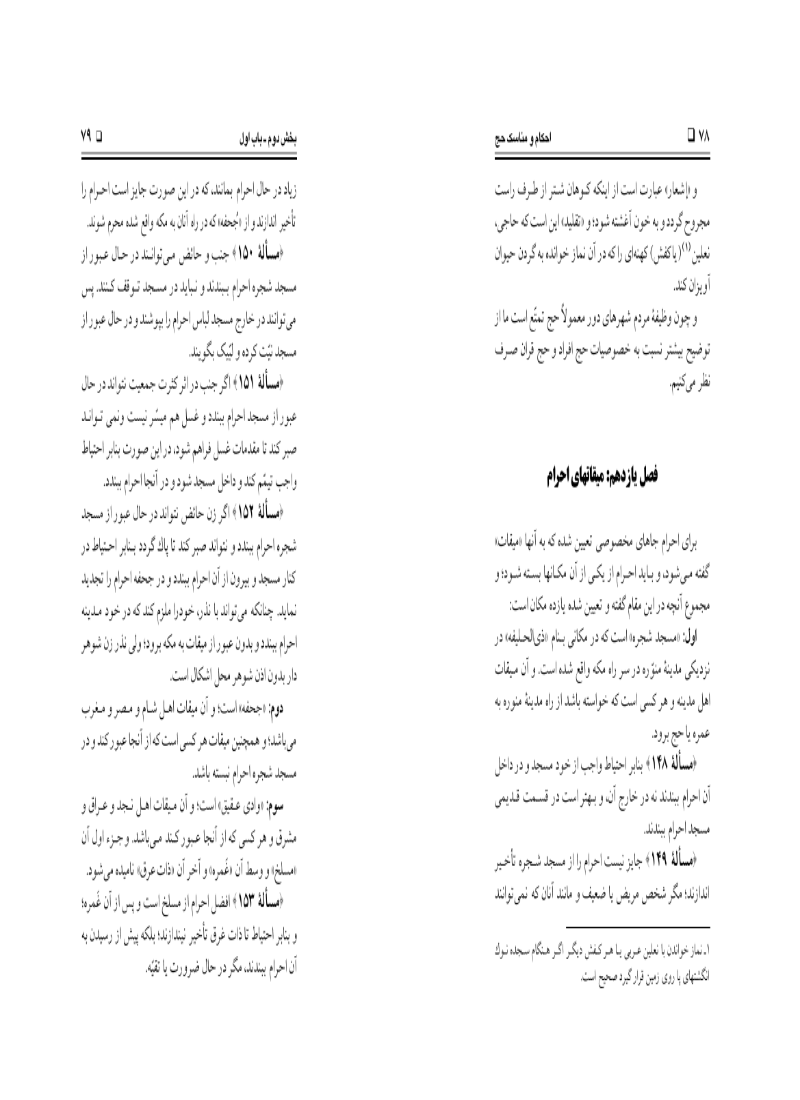 ۷۸ □ احکام و مناسک حج
و «إشعار» عبارت است از اینکه کـوهان شـتر از طـرف راست
مجروح گردد و به خون آغشته شود؛ و «تقلید» این است که حاجی،
نعلین(۱) (یا کفش) کهنه‌ای را که در آن نماز خوانده به گردن حیوان
آویزان کند.
و چون وظیفهٔ مردم شهرهای دور معمولاً حج تمتّع است ما از
توضیح بیشتر نسبت به خصوصیات حج افراد و حج قران صـرف
نظر می‌کنیم.
فصل یازدهم: میقاتهای احرام
برای احرام جاهای مخصوصی تعیین شده که به آنها «میقات»
گفته مـی‌شود، و بـاید احـرام از یکـی از آن مکـانها بسته شـود؛ و
مجموع آنچه در این مقام گفته و تعیین شده یازده مکان است:
اول: «مسجد شجره» است که در مکانی بـنام «ذی‌الحـلیفه» در
نزدیکی مدینهٔ منوّره در سر راه مکه واقع شده است. و آن میقات
اهل مدینه و هر کسی است که خواسته باشد از راه مدینهٔ منوره به
عمره یا حج برود.
﴿مسألهٔ ۱۴۸﴾ بنابر احتیاط واجب از خود مسجد و در داخل
آن احرام ببندند نه در خارج آن، و بـهتر است در قسـمت قـدیمی
مسجد احرام ببندند.
﴿مسألهٔ ۱۴۹﴾ جایز نیست احرام را از مسجد شـجره تأخـیر
اندازند؛ مگر شخص مریض یا ضعیف و مانند آنان که نمی‌توانند
۱ـ نماز خواندن با نعلین عـربی یـا هـر کـفش دیگـر اگـر هـنگام سـجده نـوك
انگشتهای پا روی زمین قرار گیرد صحیح است.
بخش دوم ـ باب اول □ ۷۹
زیاد در حال احرام بمانند، که در این صورت جایز است احـرام را
تأخیر اندازند و از «جُحفه» که در راه آنان به مکه واقع شده محرم شوند.
﴿مسألهٔ ۱۵۰﴾ جنب و حائض مـی‌توانـند در حـال عـبور از
مسجد شجره احرام بـبندند و نـباید در مسـجد تـوقف کـنند. پس
می‌توانند در خارج مسجد لباس احرام را بپوشند و در حال عبور از
مسجد نیّت کرده و لبّیک بگویند.
﴿مسألهٔ ۱۵۱﴾ اگر جنب در اثر کثرت جمعیت نتواند در حال
عبور از مسجد احرام ببندد و غسل هم میسّر نیست ونمی تـوانـد
صبر کند تا مقدمات غسل فراهم شود، در این صورت بنابر احتیاط
واجب تیمّم کند و داخل مسجد شود و در آنجا احرام ببندد.
﴿مسألهٔ ۱۵۲﴾ اگر زن حائض نتواند در حال عبور از مسجد
شجره احرام ببندد و نتواند صبر کند تا پاك گردد بـنابر احـتیاط در
کنار مسجد و بیرون از آن احرام ببندد و در جحفه احرام را تجدید
نماید. چنانکه می‌تواند با نذر، خودرا ملزم کند که در خود مـدینه
احرام ببندد و بدون عبور از میقات به مکه برود؛ ولی نذر زن شوهر
دار بدون اذن شوهر محل اشکال است.
دوم: «جحفه» است؛ و آن میقات اهـل شـام و مـصر و مـغرب
می‌باشد؛ و همچنین میقات هر کسی است که از آنجا عبور کند و در
مسجد شجره احرام نبسته باشد.
سوم: «وادی عـقیق» است؛ و آن مـیقات اهـل نـجد و عـراق و
مشرق و هر کسی که از آنجا عـبور کـند مـی‌باشد. و جـزء اول آن
«مسلخ» و وسط آن «غَمره» و آخر آن «ذات عرق» نامیده می‌شود.
﴿مسألهٔ ۱۵۳﴾ افضل احرام از مسلخ است و پس از آن غَمره؛
و بنابر احتیاط تا ذات غرق تأخیر نیندازند؛ بلکه پیش از رسیدن به
آن احرام ببندند، مگر در حال ضرورت یا تقیّه.